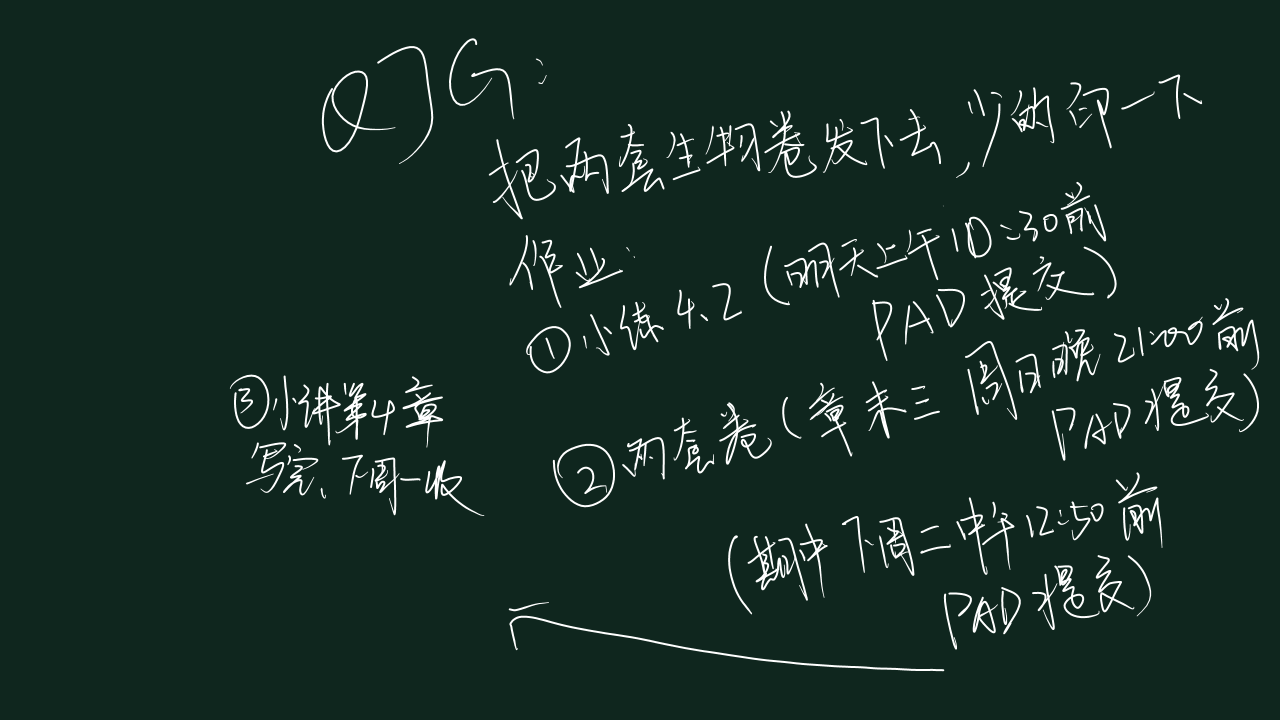 QJG:
把两套生物卷发下去,少的印一下
作业:
①小练4.2(明天上午10:30前
PAD提交)
②两套卷(章末三 周日晚21:00前
PAD提交)
(期中 下周二中午12:50前
PAD提交)
③小讲第4章
写完、下周一收